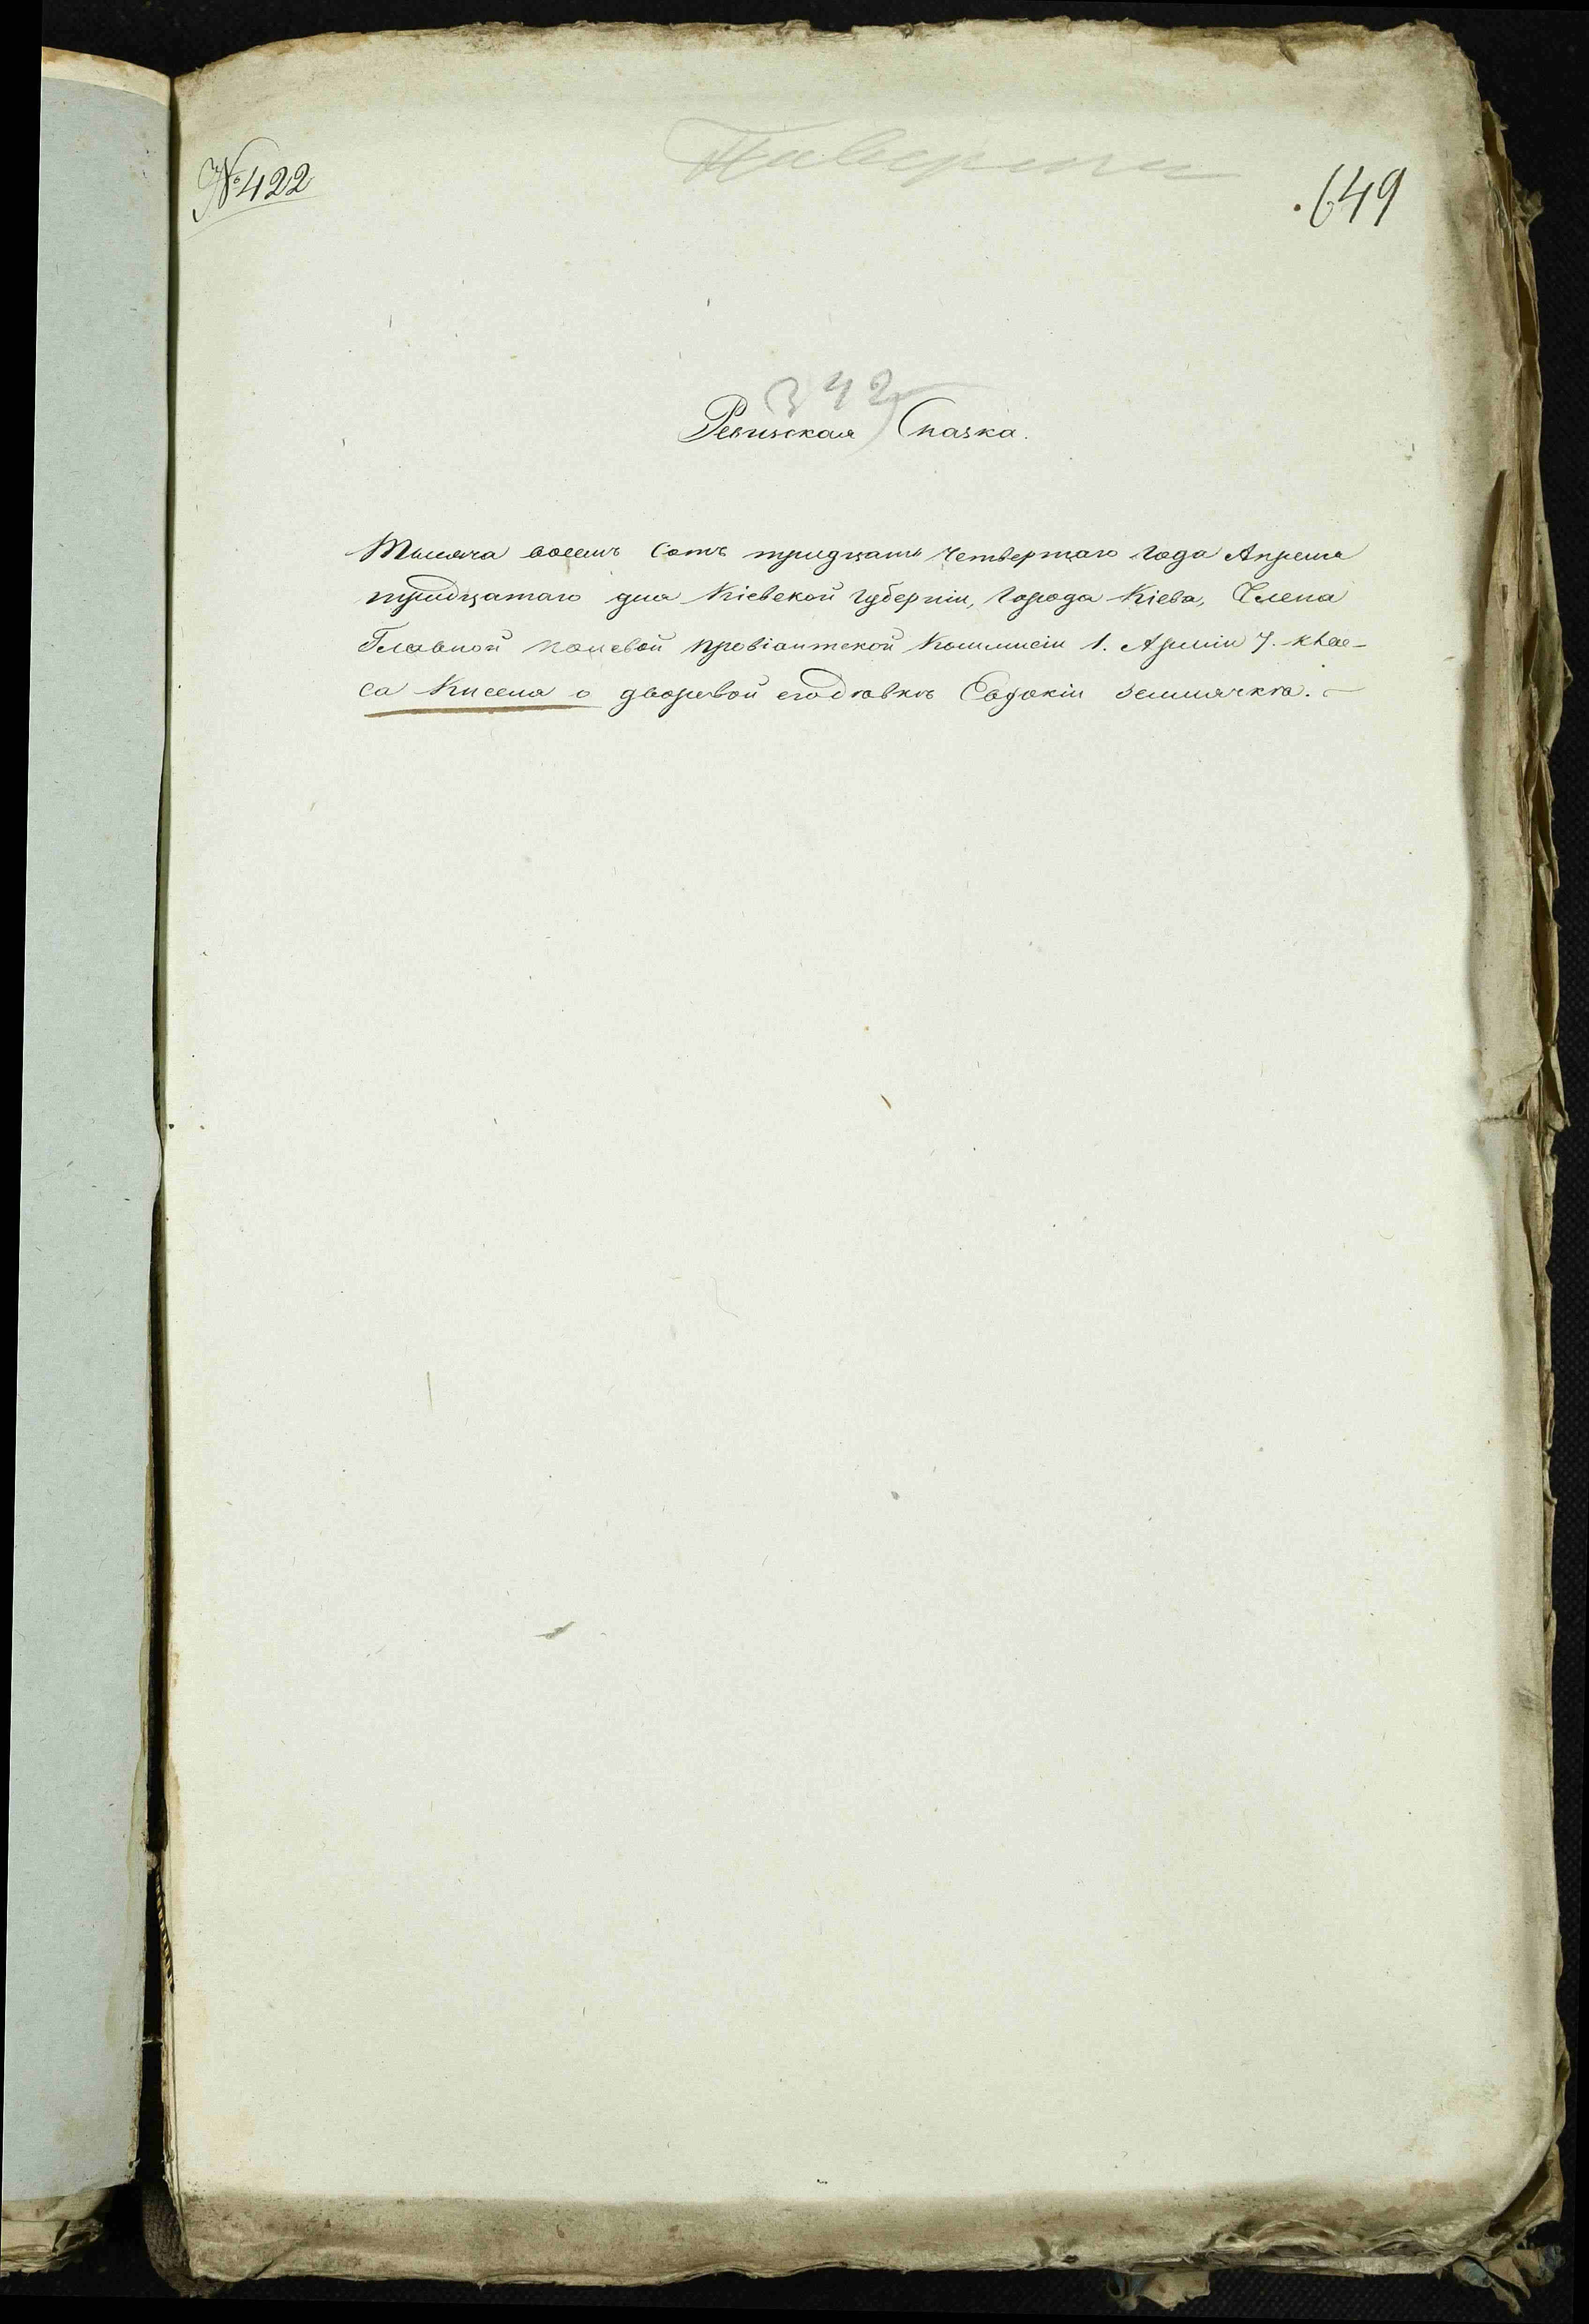 № 422
649
342
Ревизская Сказка.
Тысяча восемь сотъ тридцать четвертаго года Апреля
тридцатаго дня Кіевской губерніи, города Кіева, Члена
Главной полевой провіантской Коммисіи 1. Арміи 7. клас-
са Киселя о дворовой его дѣвкѣ Евдокіи